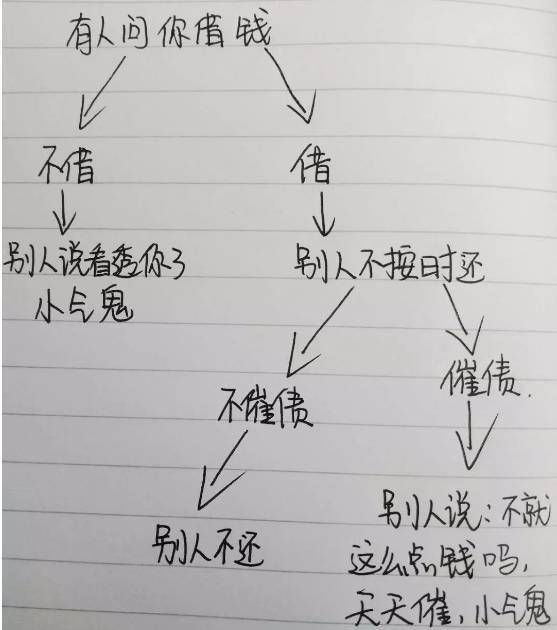 有人问你借钱
不借
借
别人说看透你了
小气鬼
别人不按时还
不催债
催债.
别人不还
别人说：不就
这么点钱吗，
天天催，小气鬼